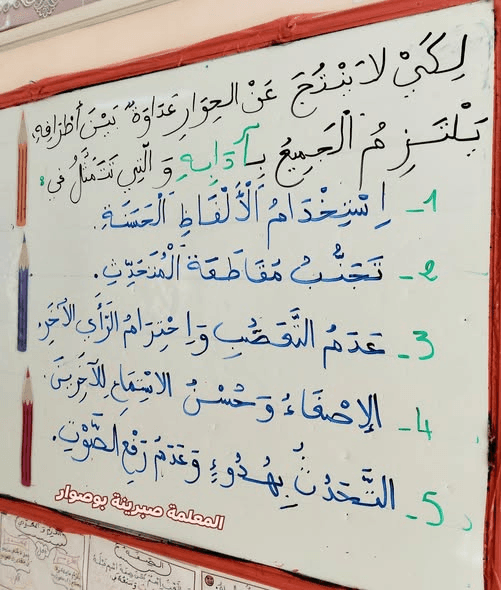 لِكَيْ لَا يَنْتُجَ عَنْ الحِوَارِ عَدَاوَةٌ بَيْنَ أَطْرَافِهِ
يَلْتَزِمُ الْجَمِيعُ بِآدَابِهِ وَالَّتِي تَتَمَثَّلُ فِي:
1- اِسْتِخْدَامُ الْأَلْفَاظِ الْحَسَنَةِ.
2- تَجَنُّبُ مُقَاطَعَةِ الْمُتَحَدِّثِ.
3- عَدَمُ التَّعَصُّبِ وَاِحْتِرَامُ الرَّأْيِ الآخَرِ
4- الإِصْغَاءُ وَحُسْنُ الاسْتِمَاعِ لِلآخَرِينَ.
5- التَّحَدُّثُ بِهُدُوءٍ وَعَدَمُ رَفْعِ الصَّوْتِ.
المعلمة صبرينة بوصوار